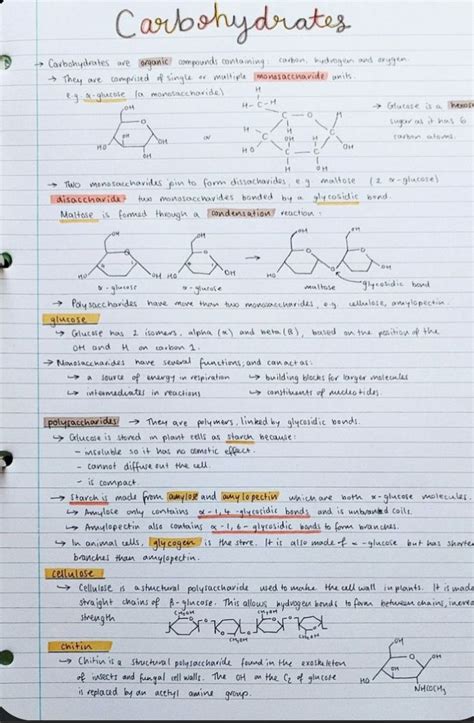 Carbohydrates
→ Carbohydrates are organic compounds containing: carbon, hydrogen and oxygen.
→ They are comprised of single or multiple monosaccharide units.
e.g. α-glucose (a monosaccharide)
→ Glucose is a hexose
sugar as it has 6
carbon atoms.
OH
OH
HO
OH
or
H
H-C-H
O
H
H
HO
OH
→ Two monosaccharides join to form dissacharides, e.g. maltose (2 α-glucose)
disaccharide two monosaccharides bonded by a glycosidic bond.
Maltose is formed through a condensation reaction:
OH
OH
OH
OH
HO
OH
HO
OH
HO
O
OH
α-glucose
α-glucose
maltose
glycosidic bond
→ Polysaccharides have more than two monosaccharides, e.g. cellulose, amylopectin.
glucose
↳ Glucose has 2 isomers, alpha (α) and beta (β), based on the position of the
OH and H on carbon 1.
→ Monosaccharides have several functions, and can act as:
↳ a source of energy in respiration
↳ building blocks for larger molecules
↳ intermediates in reactions
↳ constituents of nucleotides.
polysaccharides → They are polymers, linked by glycosidic bonds.
→ Glucose is stored in plant cells as starch because:
- insoluble so it has no osmotic effect.
- cannot diffuse out the cell.
- is compact.
→ Starch is made from amylose and amylopectin which are both α-glucose molecules
↳ Amylose only contains α-1,4-glycosidic bonds and is unbranched coils.
↳ Amylopectin also contains α-1,6-glycosidic bonds to form branches.
↳ In animal cells, glycogen is the store. It is also made of α-glucose but has shorter
branches than amylopectin.
cellulose
↳ Cellulose is a structural polysaccharide used to make the cell wall in plants. It is made
straight chains of β-glucose. This allows hydrogen bonds to form between chains,
strength
CH₂OH
CH₂OH
CH₂OH
CH₂OH
chitin
↳ Chitin is a structural polysaccharide found in the exoskeleton
of insects and fungal cell walls. The OH on the C₂ of glucose
is replaced by an acetyl amine group.
OH
OH
HO
OH
NHCOCH₃